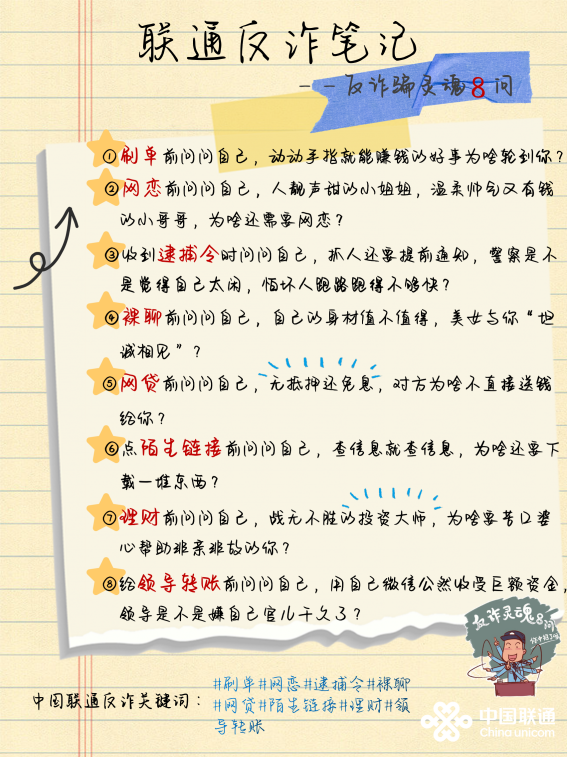 联通反诈笔记
--反诈骗灵魂8问
①刷单前问问自己，动动手指就能赚钱的好事为啥轮到你？
②网恋前问问自己，人靓声甜的小姐姐，温柔帅气又有钱
的小哥哥，为啥还需要网恋？
③收到逮捕令时问问自己，抓人还要提前通知，警察是不
是觉得自己太闲，怕坏人跑路跑得不够快？
④裸聊前问问自己，自己的身材值不值得，美女与你“坦
诚相见”？
⑤网贷前问问自己，无抵押还免息，对方为啥不直接送钱
给你？
⑥点陌生链接前问问自己，查信息就查信息，为啥还要下
载一堆东西？
⑦理财前问问自己，战无不胜的投资大师，为啥要苦口婆
心帮助非亲非故的你？
⑧给领导转账前问问自己，用自己微信公然收受巨额资金，
领导是不是嫌自己官儿干久了？
反诈灵魂8问
中国联通反诈关键词：
#刷单#网恋#逮捕令#裸聊
#网贷#陌生链接#理财#领
导转账
中国联通
China unicom